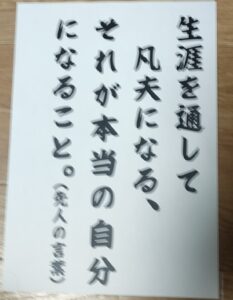 生涯を通して
凡夫になる、
それが本当の自分
になること。(先人の言葉)